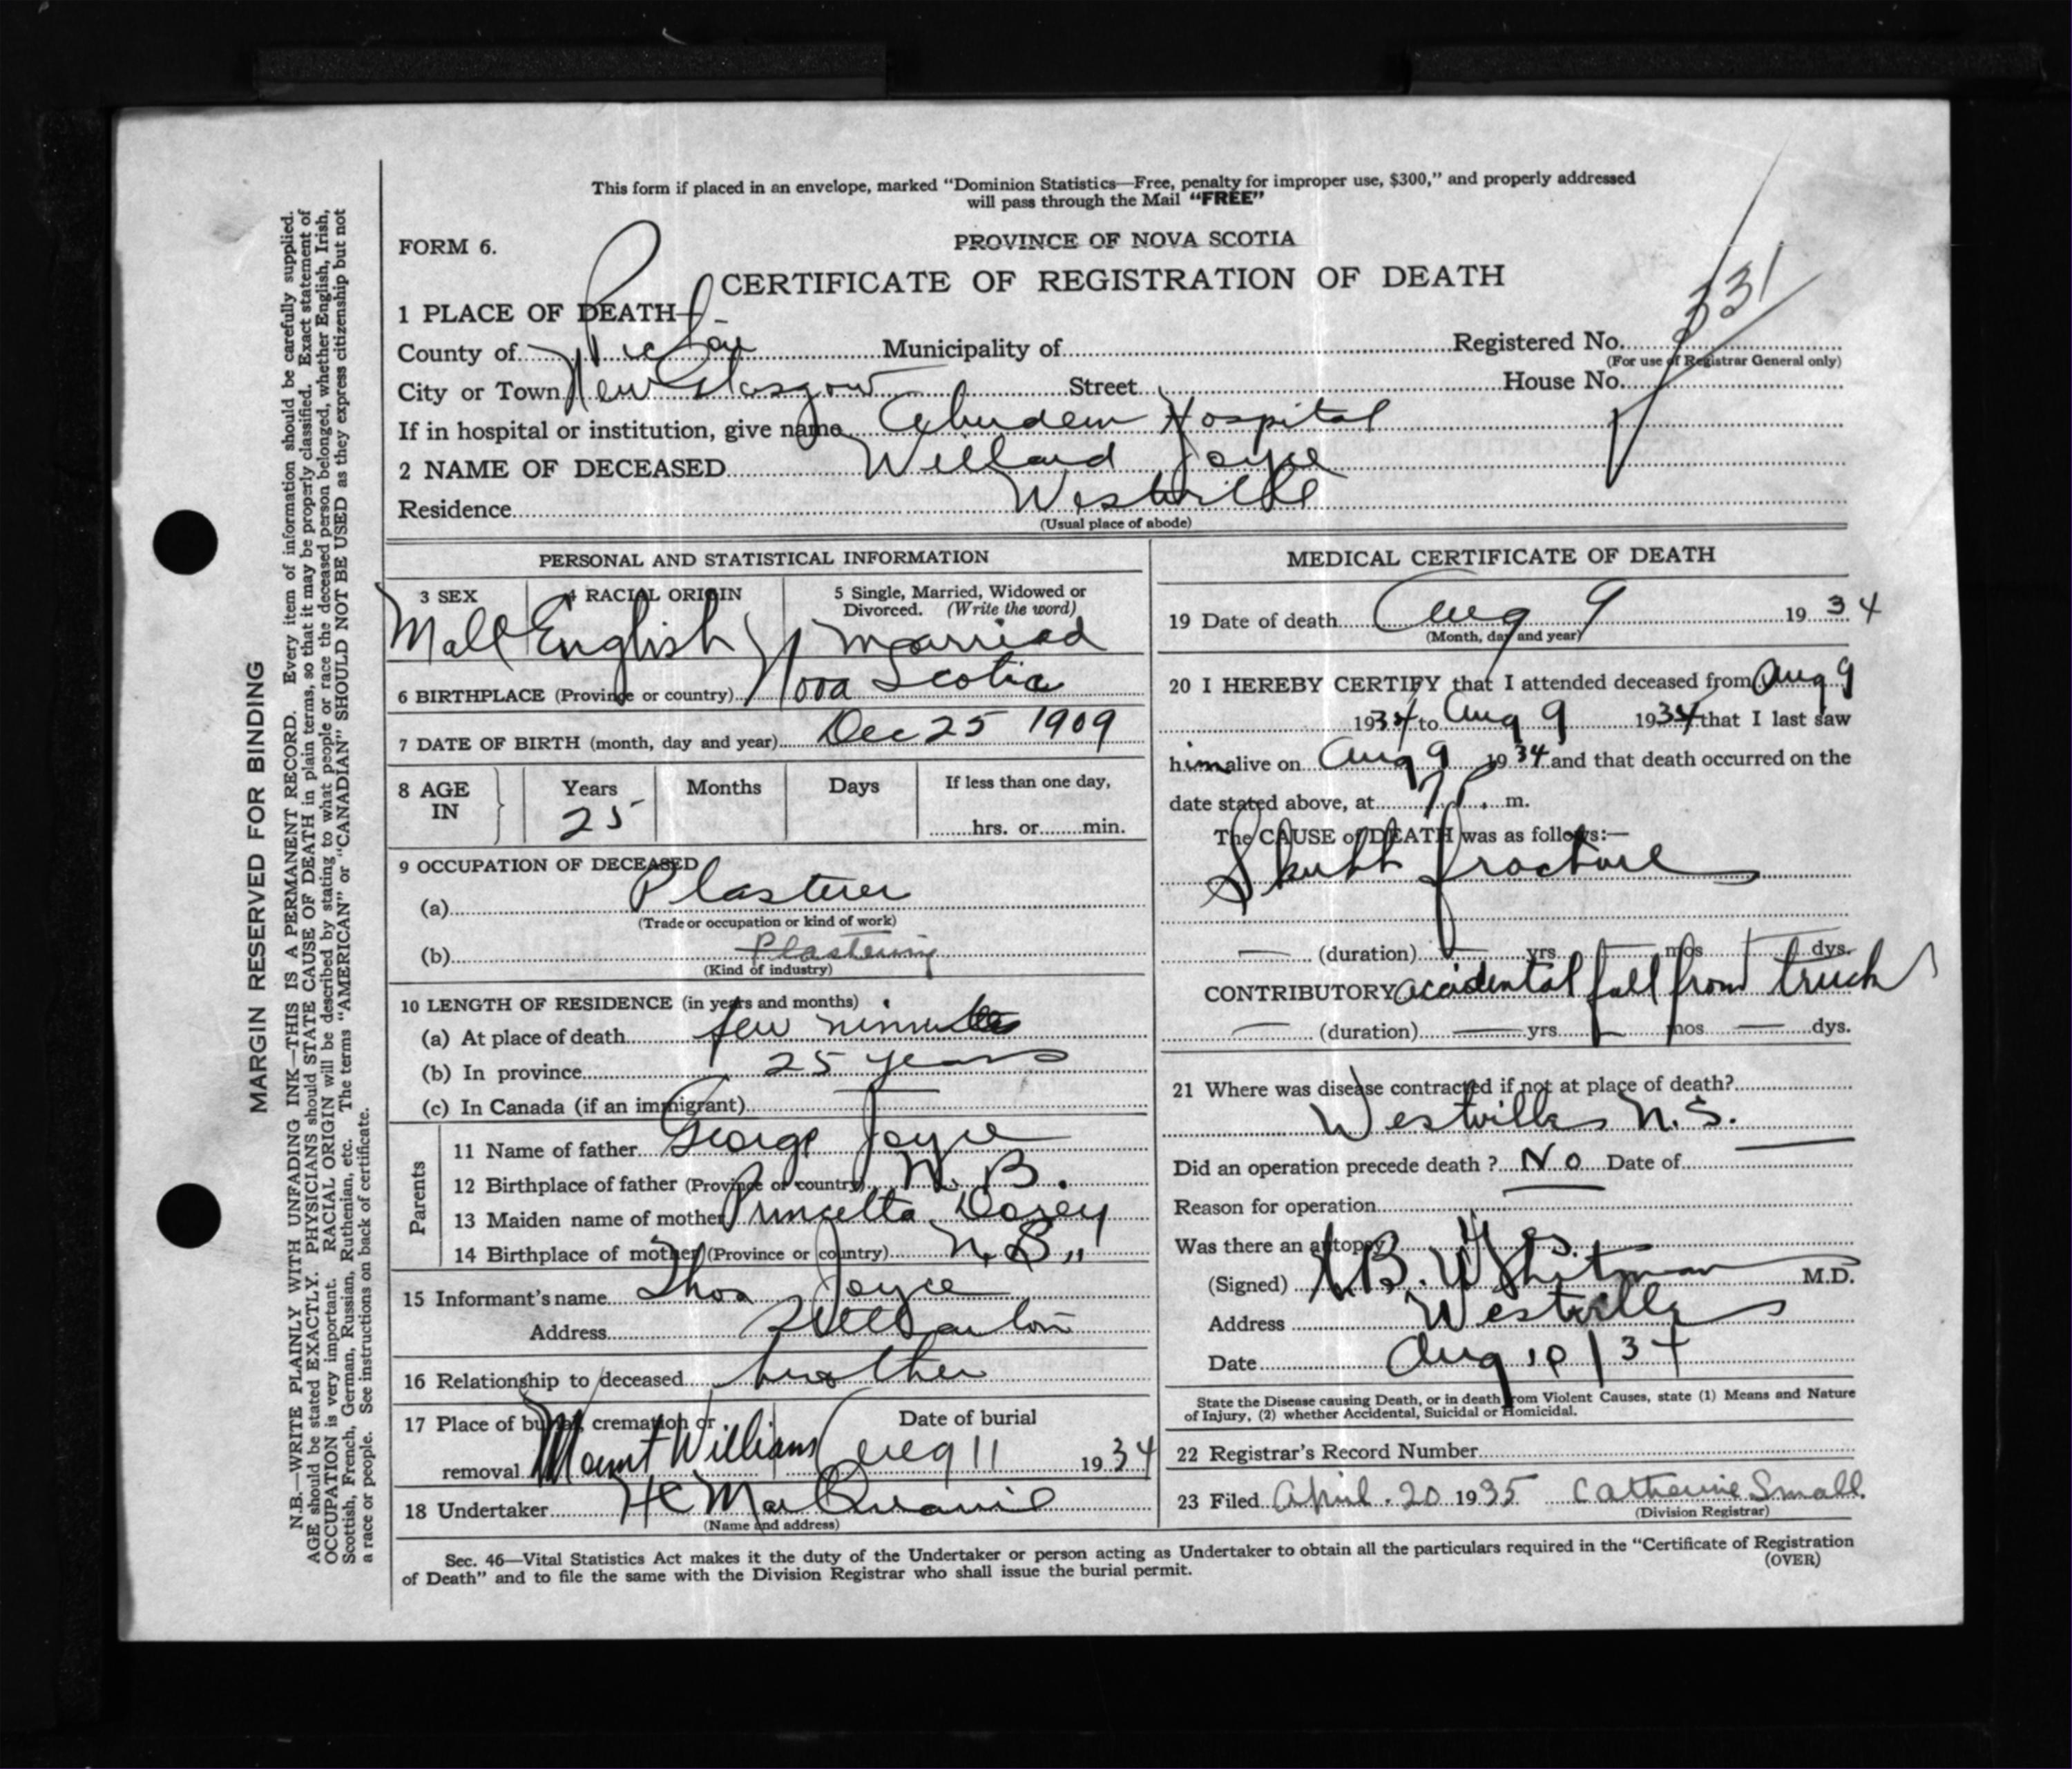 This form if placed in an envelope, marked “Dominion Statistics—Free, penalty for improper use, $300,” and properly addressed
will pass through the Mail “FREE”
FORM 6.
PROVINCE OF NOVA SCOTIA
CERTIFICATE OF REGISTRATION OF DEATH
331
1 PLACE OF DEATH
County of Pictou Municipality of Registered No.
(For use of Registrar General only)
City or Town New Glasgow Street House No.
If in hospital or institution, give name Aberdeen Hospital
2 NAME OF DECEASED Willard Joyce
Residence Westville
(Usual place of abode)
PERSONAL AND STATISTICAL INFORMATION
3 SEX 4 RACIAL ORIGIN 5 Single, Married, Widowed or
Divorced. (Write the word)
Male English married
6 BIRTHPLACE (Province or country) Nova Scotia
7 DATE OF BIRTH (month, day and year) Dec 25 1909
8 AGE IN Years Months Days If less than one day,
25 hrs. or min.
9 OCCUPATION OF DECEASED
(a) Plasterer
(Trade or occupation or kind of work)
(b) Plastering
(Kind of industry)
10 LENGTH OF RESIDENCE (in years and months)
(a) At place of death few minutes
(b) In province 25 years
(c) In Canada (if an immigrant)
Parents
11 Name of father George Joyce
12 Birthplace of father (Province or country) N. B.
13 Maiden name of mother Princetta Dorey
14 Birthplace of mother (Province or country) N. S.
15 Informant's name Thos Joyce
Address Stellarton
16 Relationship to deceased brother
17 Place of burial, cremation or Date of burial
removal Mount William Aug 11 1934
18 Undertaker H C MacQuarrie
(Name and address)
MEDICAL CERTIFICATE OF DEATH
19 Date of death Aug 9 1934
(Month, day and year)
20 I HEREBY CERTIFY that I attended deceased from Aug 9
1934 to Aug 9 1934 that I last saw
him alive on Aug 9 1934 and that death occurred on the
date stated above, at 7 P. m.
The CAUSE of DEATH was as follows:—
Skull fracture
(duration) yrs. mos. dys.
CONTRIBUTORY accidental fall from truck
(duration) yrs. mos. dys.
21 Where was disease contracted if not at place of death?
Westville N. S.
Did an operation precede death? No Date of
Reason for operation
Was there an autopsy?
(Signed) B. Whitman M.D.
Address Westville
Date Aug 10/34
State the Disease causing Death, or in death from Violent Causes, state (1) Means and Nature
of Injury, (2) whether Accidental, Suicidal or Homicidal.
22 Registrar's Record Number
23 Filed April. 20 1935 Catherine Small
(Division Registrar)
Sec. 46—Vital Statistics Act makes it the duty of the Undertaker or person acting as Undertaker to obtain all the particulars required in the “Certificate of Registration
of Death” and to file the same with the Division Registrar who shall issue the burial permit. (OVER)
MARGIN RESERVED FOR BINDING
N.B.—WRITE PLAINLY WITH UNFADING INK—THIS IS A PERMANENT RECORD. Every item of information should be carefully supplied.
AGE should be stated EXACTLY. PHYSICIANS should STATE CAUSE OF DEATH in plain terms, so that it may be properly classified. Exact statement of
OCCUPATION is very important. RACIAL ORIGIN will be described by stating to what people or race the deceased person belonged, whether English, Irish,
Scottish, French, German, Russian, Ruthenian, etc. The terms “AMERICAN” or “CANADIAN” SHOULD NOT BE USED as they express citizenship but not
a race or people. See instructions on back of certificate.